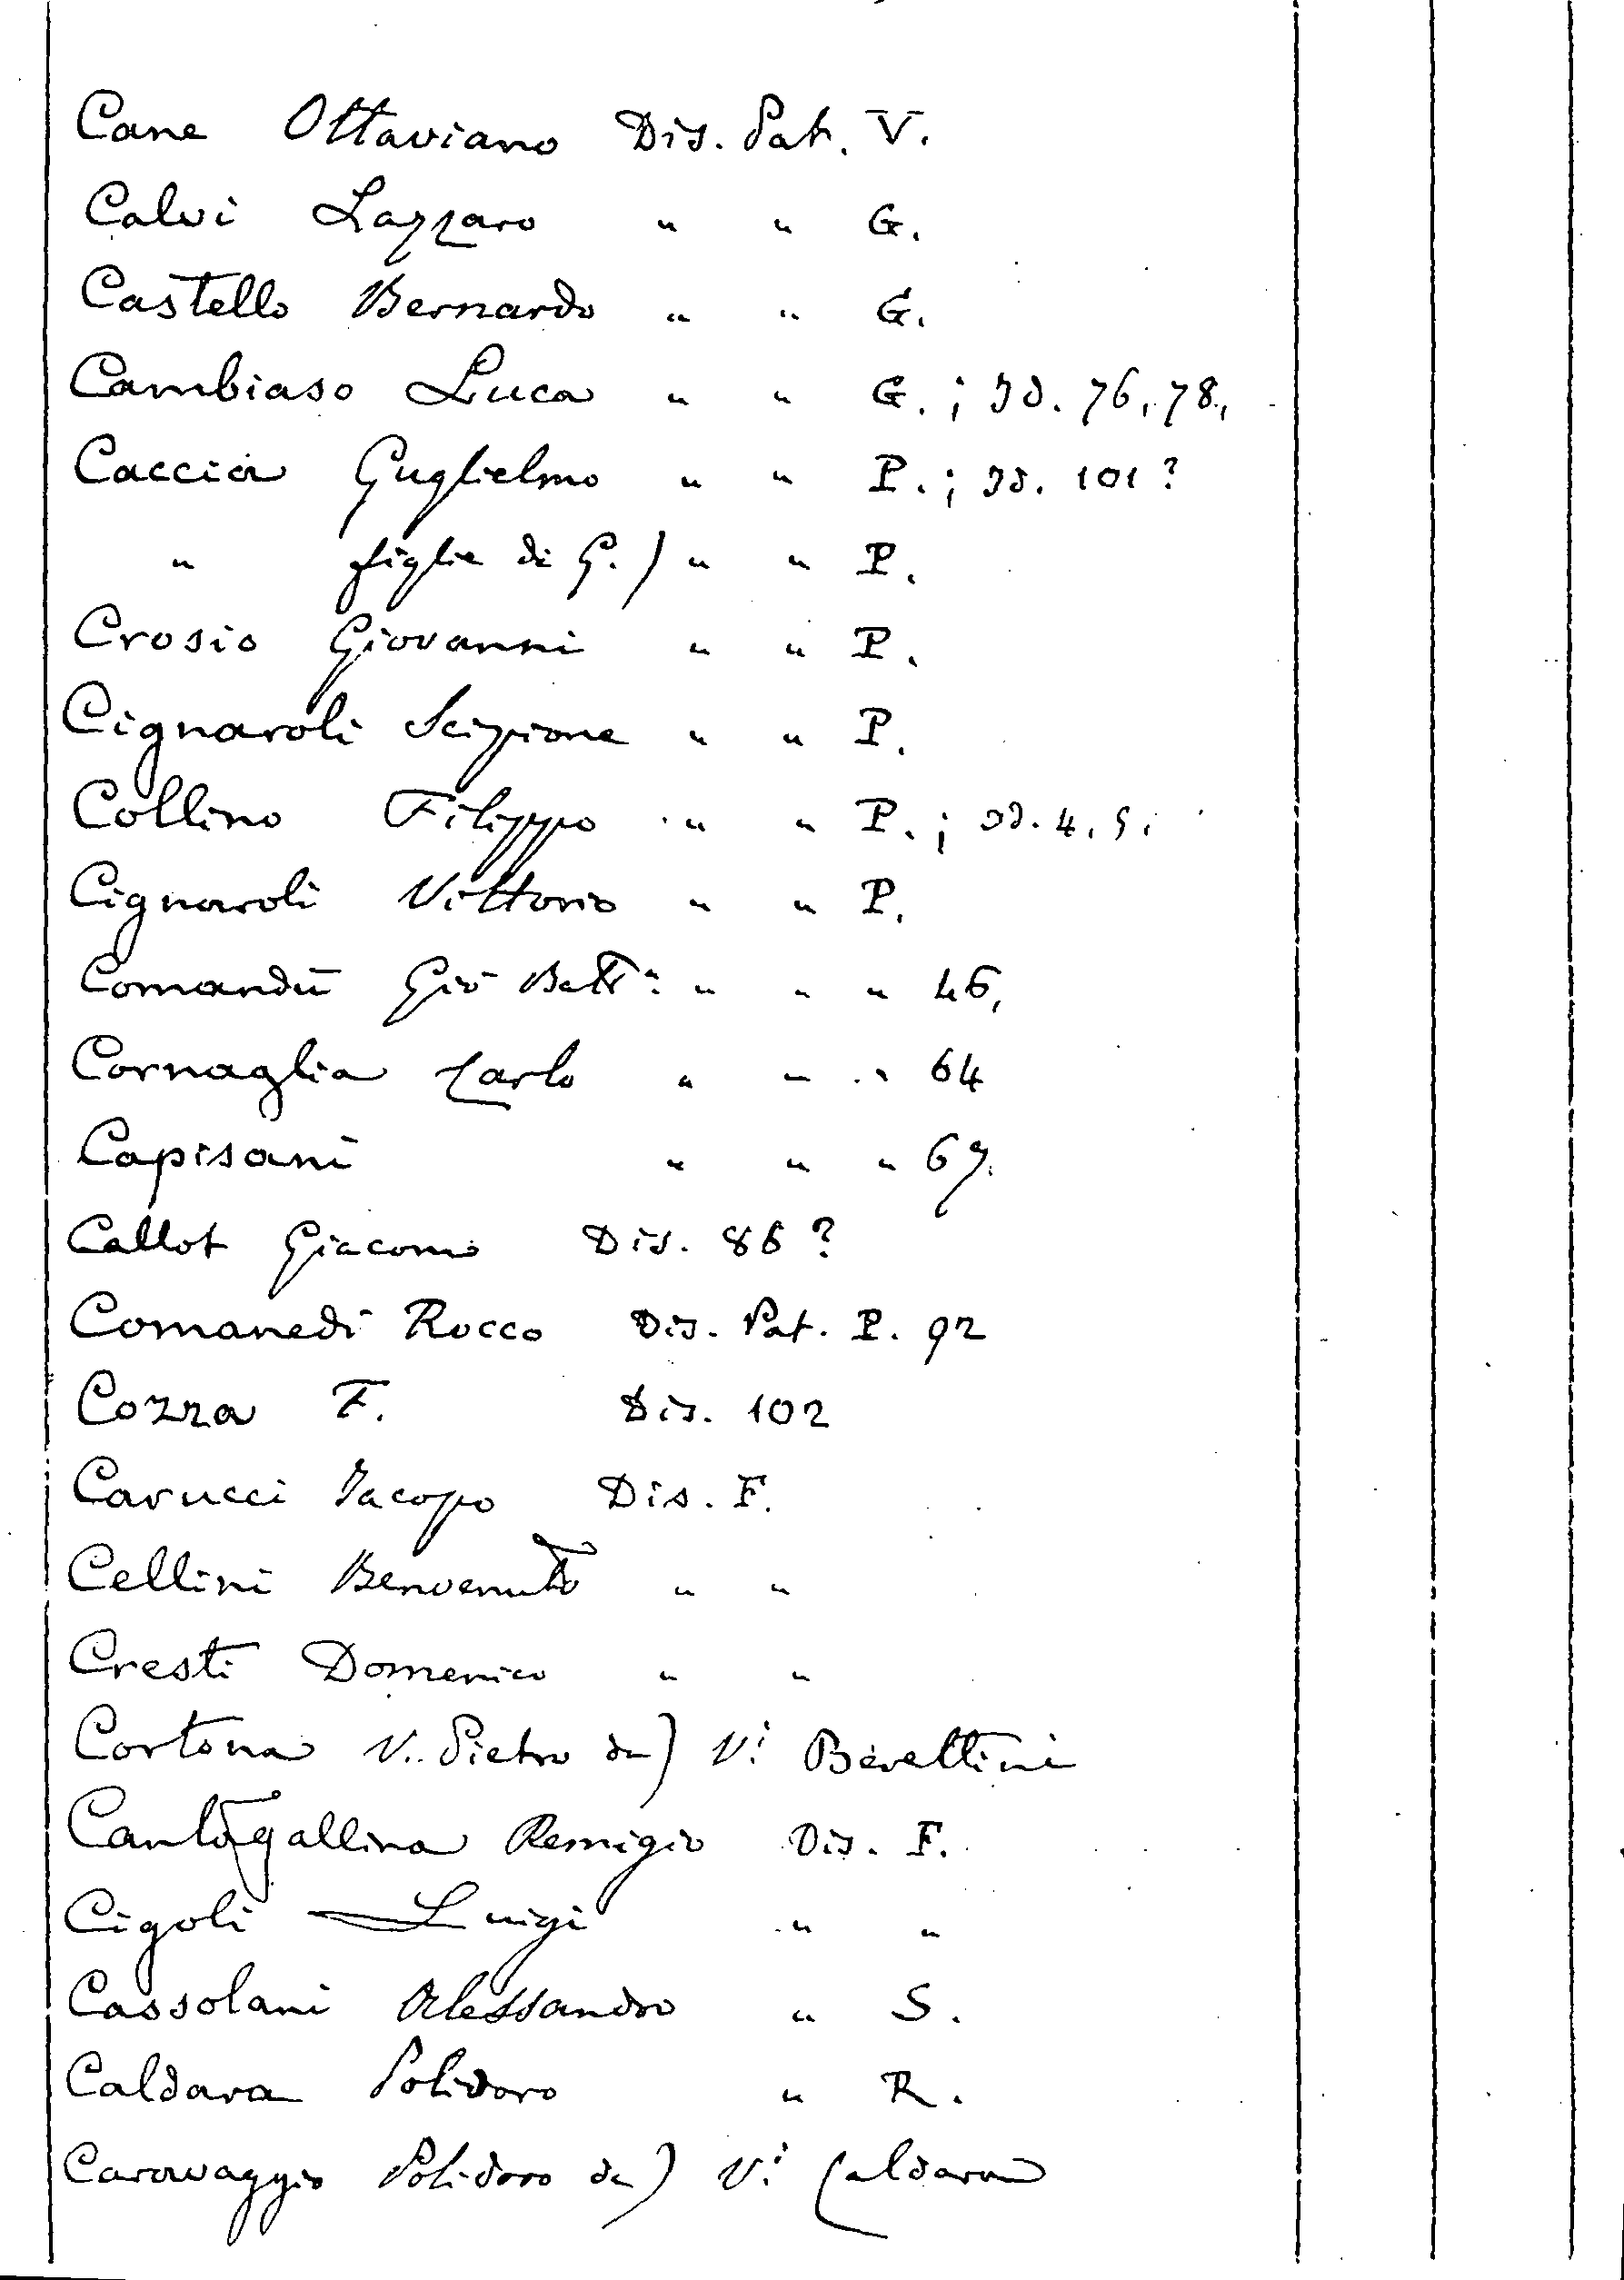 Cane Ottaviano Dis. Pat. V.
Calvi Lazzaro " " G.
Castello Bernardo " " G.
Cambiaso Luca " " G. ; Id. 76, 78,
Caccia Guglielmo " " P. ; Id. 101 ?
" figlie di G. ) " " P.
Crosio Giovanni " " P.
Cignaroli Scipione " " P.
Collino Filippo " " P. ; Id. 4, 5,
Cignaroli Vittorio " " P.
Comandù Gio Batta: " " " 46,
Cornaglia Carlo " " " 64
Capisani " " " 67.
Callot Giacomo Dis. 86 ?
Comanedi Rocco Dis. Pat. P. 92
Cozza F. Dis. 102
Carucci Jacopo Dis. F.
Cellini Benvenuto " "
Cresti Domenico " "
Cortona V. Pietro da ) Vi Berettini
Cantogallina Remigio Dis. F.
Cigoli Luigi " "
Cassolani Alessandro " S.
Caldara Polidoro " R.
Caravaggio Polidoro da ) Vi Caldara